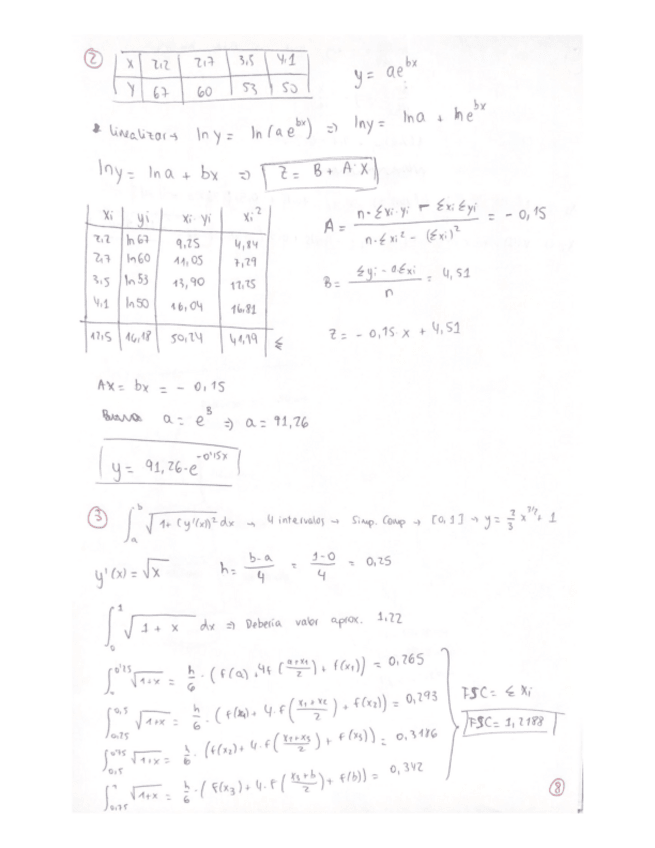 ②
X 2,2 2,7 3,5 4,1
Y 67 60 53 50
y = ae^{bx}
* Linealizar → ln y = ln(ae^{bx}) ⇒ ln y = ln a + ln e^{bx}
ln y = ln a + bx ⇒ Z = B + A·X
xi yi xi·yi xi²
2,2 ln67 9,25 4,84
2,7 ln60 11,05 7,29
3,5 ln53 13,90 12,25
4,1 ln50 16,04 16,81
12,5 16,18 50,24 41,19 Σ
A = (n·Σxi·yi − Σxi Σyi) / (n·Σxi² − (Σxi)²) = -0,15
B = (Σyi - aΣxi) / n = 4,51
Z = -0,15·x + 4,51
AX = bx = -0,15
a = e^B ⇒ a = 91,26
y = 91,26·e^{-0'15x}
③ ∫_a^b √(1+(y'(x))² dx → 4 intervalos → Simp. Comp → [0,1] → y =
y'(x) = √x h = (b-a)/4 = (1-0)/4 = 0,25
∫_0^1 √(1+x) dx ⇒ Debería valer aprox. 1,22
√(1+x) = h/6 · (f(a) + 4f((a+x1)/2) + f(x1)) = 0,265
√(1+x) = h/6 · (f(x1) + 4·f((x1+x2)/2) + f(x2)) = 0,293
√(1+x) = h/6 · (f(x2) + 4·f((x2+x3)/2) + f(x3)) = 0,3186
√(1+x) = h/6 · (f(x3) + 4·f((x3+b)/2) + f(b)) = 0,342
FSC = Σ Xi
FSC = 1,2188
⑧